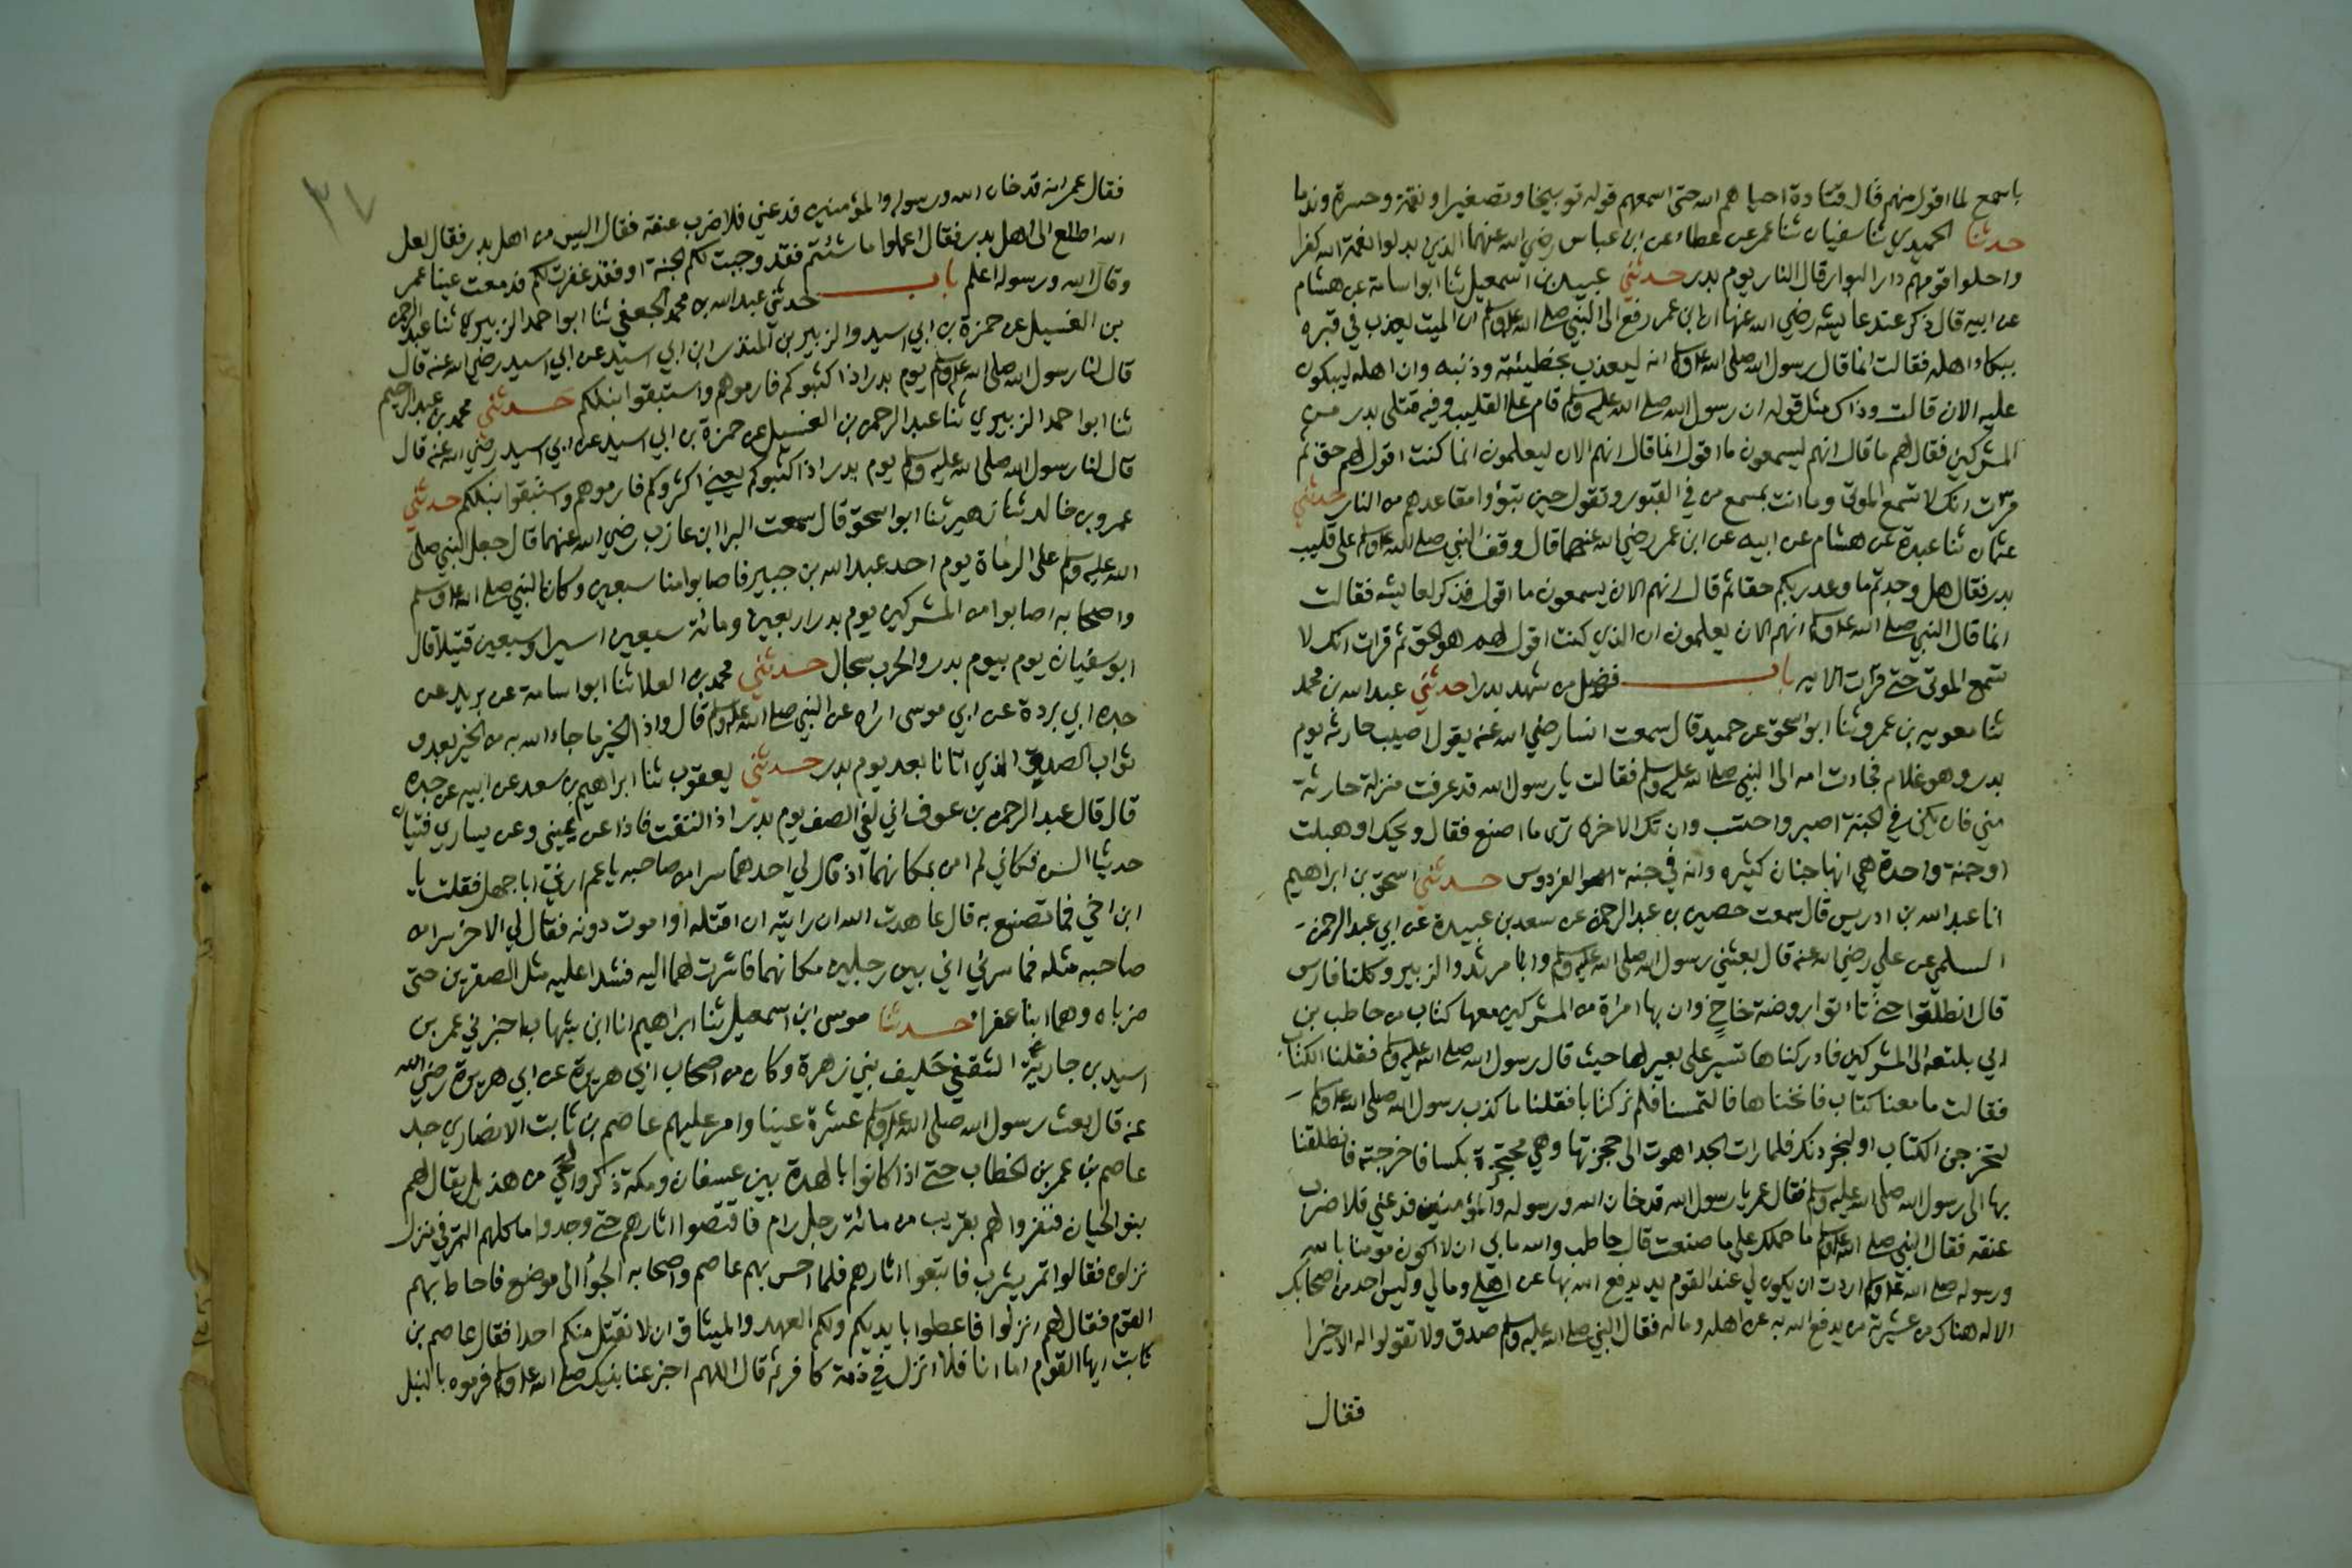 باسمع لما اقول منهم قال قتادة احياهم الله حتى اسمعهم قوله توبيخا وتصغيرا ونقمة وحسرة وندما
حدثنا الحميدي ثنا سفيان ثنا عمر عن عطاء عن ابن عباس رضي الله عنهما الذين بدلوا نعمة الله كفرا
واحلوا قومهم دار البوار قال النار يوم بدر حدثني عبيد بن اسمعيل ثنا ابو اسامة عن هشام
عن ابيه قال ذكر عند عايشه رضي الله عنها ان ابن عمر رفع الى النبي صلى الله علوسلم ان الميت يعذب في قبره
ببكاء اهله فقالت انما قال رسول الله صلى الله علوسلم انه ليعذب بخطيئته وذنبه وان اهله ليبكون
عليه الان قالت وذاك مثل قوله ان رسول الله صلى الله عليه وسلم قام على القليب وفيه قتلى بدر من
المشركين فقال لهم ما قال انهم ليسمعون ما اقول انما قال انهم الان ليعلمون انما كنت اقول لهم حق ثم
قرات انك لا تسمع الموتى وما انت بمسمع من في القبور وتقول حين تبؤوا مقاعدهم من النار حدثني
عثمان ثنا عبدة عن هشام عن ابيه عن ابن عمر رضي الله عنهما قال وقف النبي صلى الله علوسلم على قليب
بدر فقال هل وجدتم ما وعد ربكم حقا ثم قال انهم الان يسمعون ما اقول فذكر لعايشه فقالت
انما قال النبي صلى الله علوسلم انهم الان يعلمون ان الذي كنت اقول لهم هو الحق ثم قرات انك لا
تسمع الموتى حتى قرات الايه باب فضل من شهد بدرا حدثني عبد الله بن محمد
ثنا معويه بن عمرو ثنا ابو اسحق عن حميد قال سمعت انسا رضي الله عنه يقول اصيب حارثه يوم
بدر وهو غلام فجاءت امه الى النبي صلى الله عليه وسلم فقالت يا رسول الله قد عرفت منزلة حارثة
مني فان يكن في الجنة اصبر واحتسب وان تك الاخرى ترى ما اصنع فقال ويحك او هبلت
اوجنة واحدة هي انها جنان كثيره وانه في جنة الفردوس حدثني اسحق بن ابراهيم
انا عبد الله بن ادريس قال سمعت حصين بن عبد الرحمن عن سعد بن عبيدة عن ابي عبد الرحمن
السلمي عن علي رضي الله عنه قال بعثني رسول الله صلى الله عليه وسلم وابا مرثد والزبير وكلنا فارس
قال انطلقوا حتى تاتوا روضة خاخ وان بها امراة من المشركين معها كتاب من حاطب بن
ابي بلتعه الى المشركين فادركناها تسير على بعير لها حيث قال رسول الله صلى الله عليه وسلم فقلنا الكتاب
فقالت ما معنا كتاب فانخناها فالتمسنا فلم نر كتابا فقلنا ما كذب رسول الله صلى الله علوسلم
لتخرجن الكتاب او لنجردنك فلما رات الجد اهوت الى حجزتها وهي محتجزة بكسا فاخرجته فانطلقنا
بها الى رسول الله صلى الله عليه وسلم فقال عمر يا رسول الله قد خان الله ورسوله والمؤمنين فدعني فلاضرب
عنقه فقال النبي صلى الله علوسلم ما حملك على ما صنعت قال حاطب والله ما بي ان لا اكون مومنا بالله
ورسوله صلى الله علوسلم اردت ان يكون لي عند القوم يد يدفع الله بها عن اهلي ومالي وليس احد من اصحابك
الا له هناك من عشيرته من يدفع الله به عن اهله وماله فقال النبي صلى الله عليه وسلم صدق ولا تقولوا له الا خيرا
فقال
٣٧
فقال عمر انه قد خان الله ورسوله والمؤمنين فدعني فلاضرب عنقه فقال اليس من اهل بدر فقال لعل
الله اطلع الى اهل بدر فقال اعملوا ما شئتم فقد وجبت لكم الجنة او فقد غفرت لكم فدمعت عينا عمر
وقال الله ورسوله اعلم باب حدثني عبد الله بن محمد الجعفي ثنا ابو احمد الزبيري ثنا عبد الرحمن
بن الغسيل عن حمزة بن ابي اسيد والزبير بن المنذر ابن ابي اسيد عن ابي اسيد رضي الله عنه قال
قال لنا رسول الله صلى الله علوسلم يوم بدر اذا كثبوكم فارموهم واستبقوا نبلكم حدثني محمد بن عبد الرحيم
ثنا ابو احمد الزبيري ثنا عبد الرحمن بن الغسيل عن حمزة بن ابي اسيد عن ابي اسيد رضي الله عنه قال
قال لنا رسول الله صلى الله عليه وسلم يوم بدر اذا اكثبوكم يعني اكثروكم فارموهم واستبقوا نبلكم حدثني
عمرو بن خالد ثنا زهير ثنا ابو اسحق قال سمعت البرا ابن عازب رضي الله عنهما قال جعل النبي صلى
الله عليه وسلم على الرماة يوم احد عبد الله بن جبير فاصابوا منا سبعين وكان النبي صلى الله علوسلم
واصحابه اصابوا من المشركين يوم بدر اربعين ومائة سبعين اسيرا وسبعين قتيلا قال
ابو سفيان يوم بيوم بدر والحرب سجال حدثني محمد بن العلا ثنا ابو اسامة عن بريد عن
جده ابي بردة عن ابي موسى اراه عن النبي صلى الله علوسلم قال واذ الخير ما جاء الله به من الخير بعد و
ثواب الصدق الذي اتانا بعد يوم بدر حدثني يعقوب ثنا ابراهيم بن سعد عن ابيه عن جده
قال قال عبد الرحمن بن عوف اني لفي الصف يوم بدر اذ التفت فاذا عن يميني وعن يساري فتيان
حديثا السن فكاني لم امن بمكانهما اذ قال لي احدهما سرا من صاحبه يا عم ارني ابا جهل فقلت يا
ابن اخي فما تصنع به قال عاهدت الله ان رايته ان اقتله او اموت دونه فقال لي الاخر سرا من
صاحبه مثله فما سرني اني بين رجلين مكانهما فاشرت لهما اليه فشدا عليه مثل الصقرين حتى
ضرباه وهما ابنا عفرا حدثنا موسى ابن اسمعيل ثنا ابراهيم انا ابن شهاب اخبرني عمر بن
اسيد بن جارية الثقفي حليف بني زهرة وكان من اصحاب ابي هريرة عن ابي هريرة رضي الله
عنه قال بعث رسول الله صلى الله علوسلم عشرة عينا وامر عليهم عاصم بن ثابت الانصاري جد
عاصم بن عمر بن الخطاب حتى اذا كانوا بالهدة بين عسفان ومكة ذكروا لحي من هذيل يقال لهم
بنو الحيان فنفروا لهم بقريب من مائة رجل رام فاقتصوا اثارهم حتى وجدوا ماكلهم التمر في منزل
نزلوه فقالوا تمر يثرب فاتبعوا اثارهم فلما احس بهم عاصم واصحابه الجؤا الى موضع فاحاط بهم
القوم فقال لهم انزلوا فاعطوا بايديكم ولكم العهد والميثاق ان لا نقتل منكم احدا فقال عاصم بن
ثابت ايها القوم اما انا فلا انزل في ذمة كافر ثم قال اللهم اخبر عنا نبيك صلى الله علوسلم فرموه بالنبل